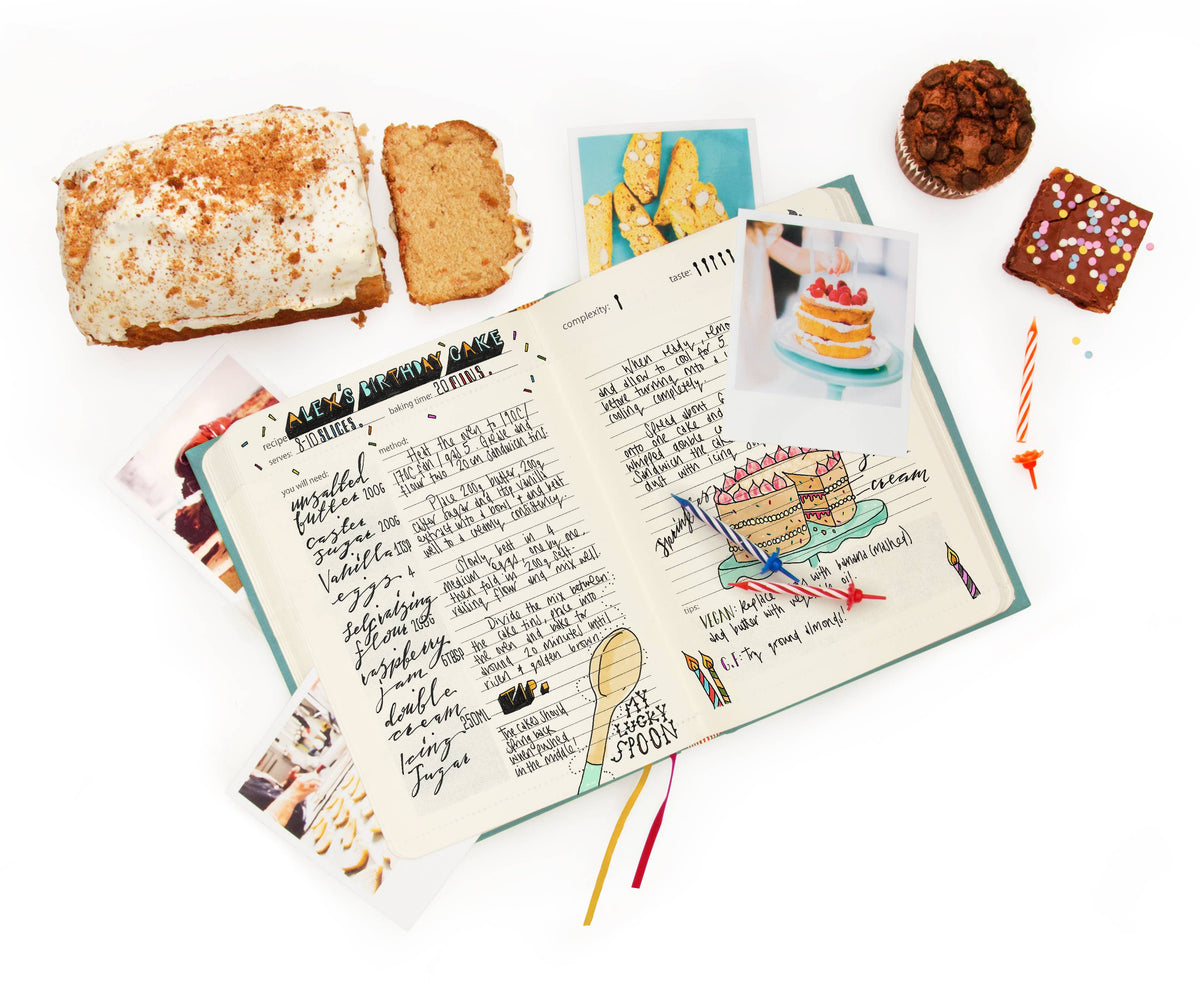 recipe: ALEX'S BIRTHDAY CAKE
serves: 8-10 SLICES. baking time: 20 MINS.
you will need:
unsalted
butter 200G
caster
sugar 200G
Vanilla 1TSP
eggs 4
self-raising
flour 200G
raspberry
jam 6TBSP
double
cream 250ML
Icing
Sugar
method:
Heat the oven to 190C/
170C fan / gas 5. Grease and
flour two 20cm sandwich tins
Place 200g butter, 200g
caster sugar and 1tsp vanilla
extract into a bowl and beat
well to a creamy consistency.
Slowly beat in 4
medium eggs, one by one,
then fold in 200g self-
raising flour and mix well.
Divide the mix between
the cake tins, place into
the oven and bake for
around 20 minutes until
risen & golden brown.
TIP.
The cakes should
spring back
when pushed
in the middle!
MY
LUCKY
SPOON
complexity:
taste:
When ready, remo
and allow to cool for 5
before turning into a
cooling completely.
Spread about 6
onto one cake
whipped double c
Sandwich the cak
dust with icing
sprinkles
cream
tips:
VEGAN: Replace with banana (mashed)
and butter with vegetable oil
G.F: Try ground almonds!